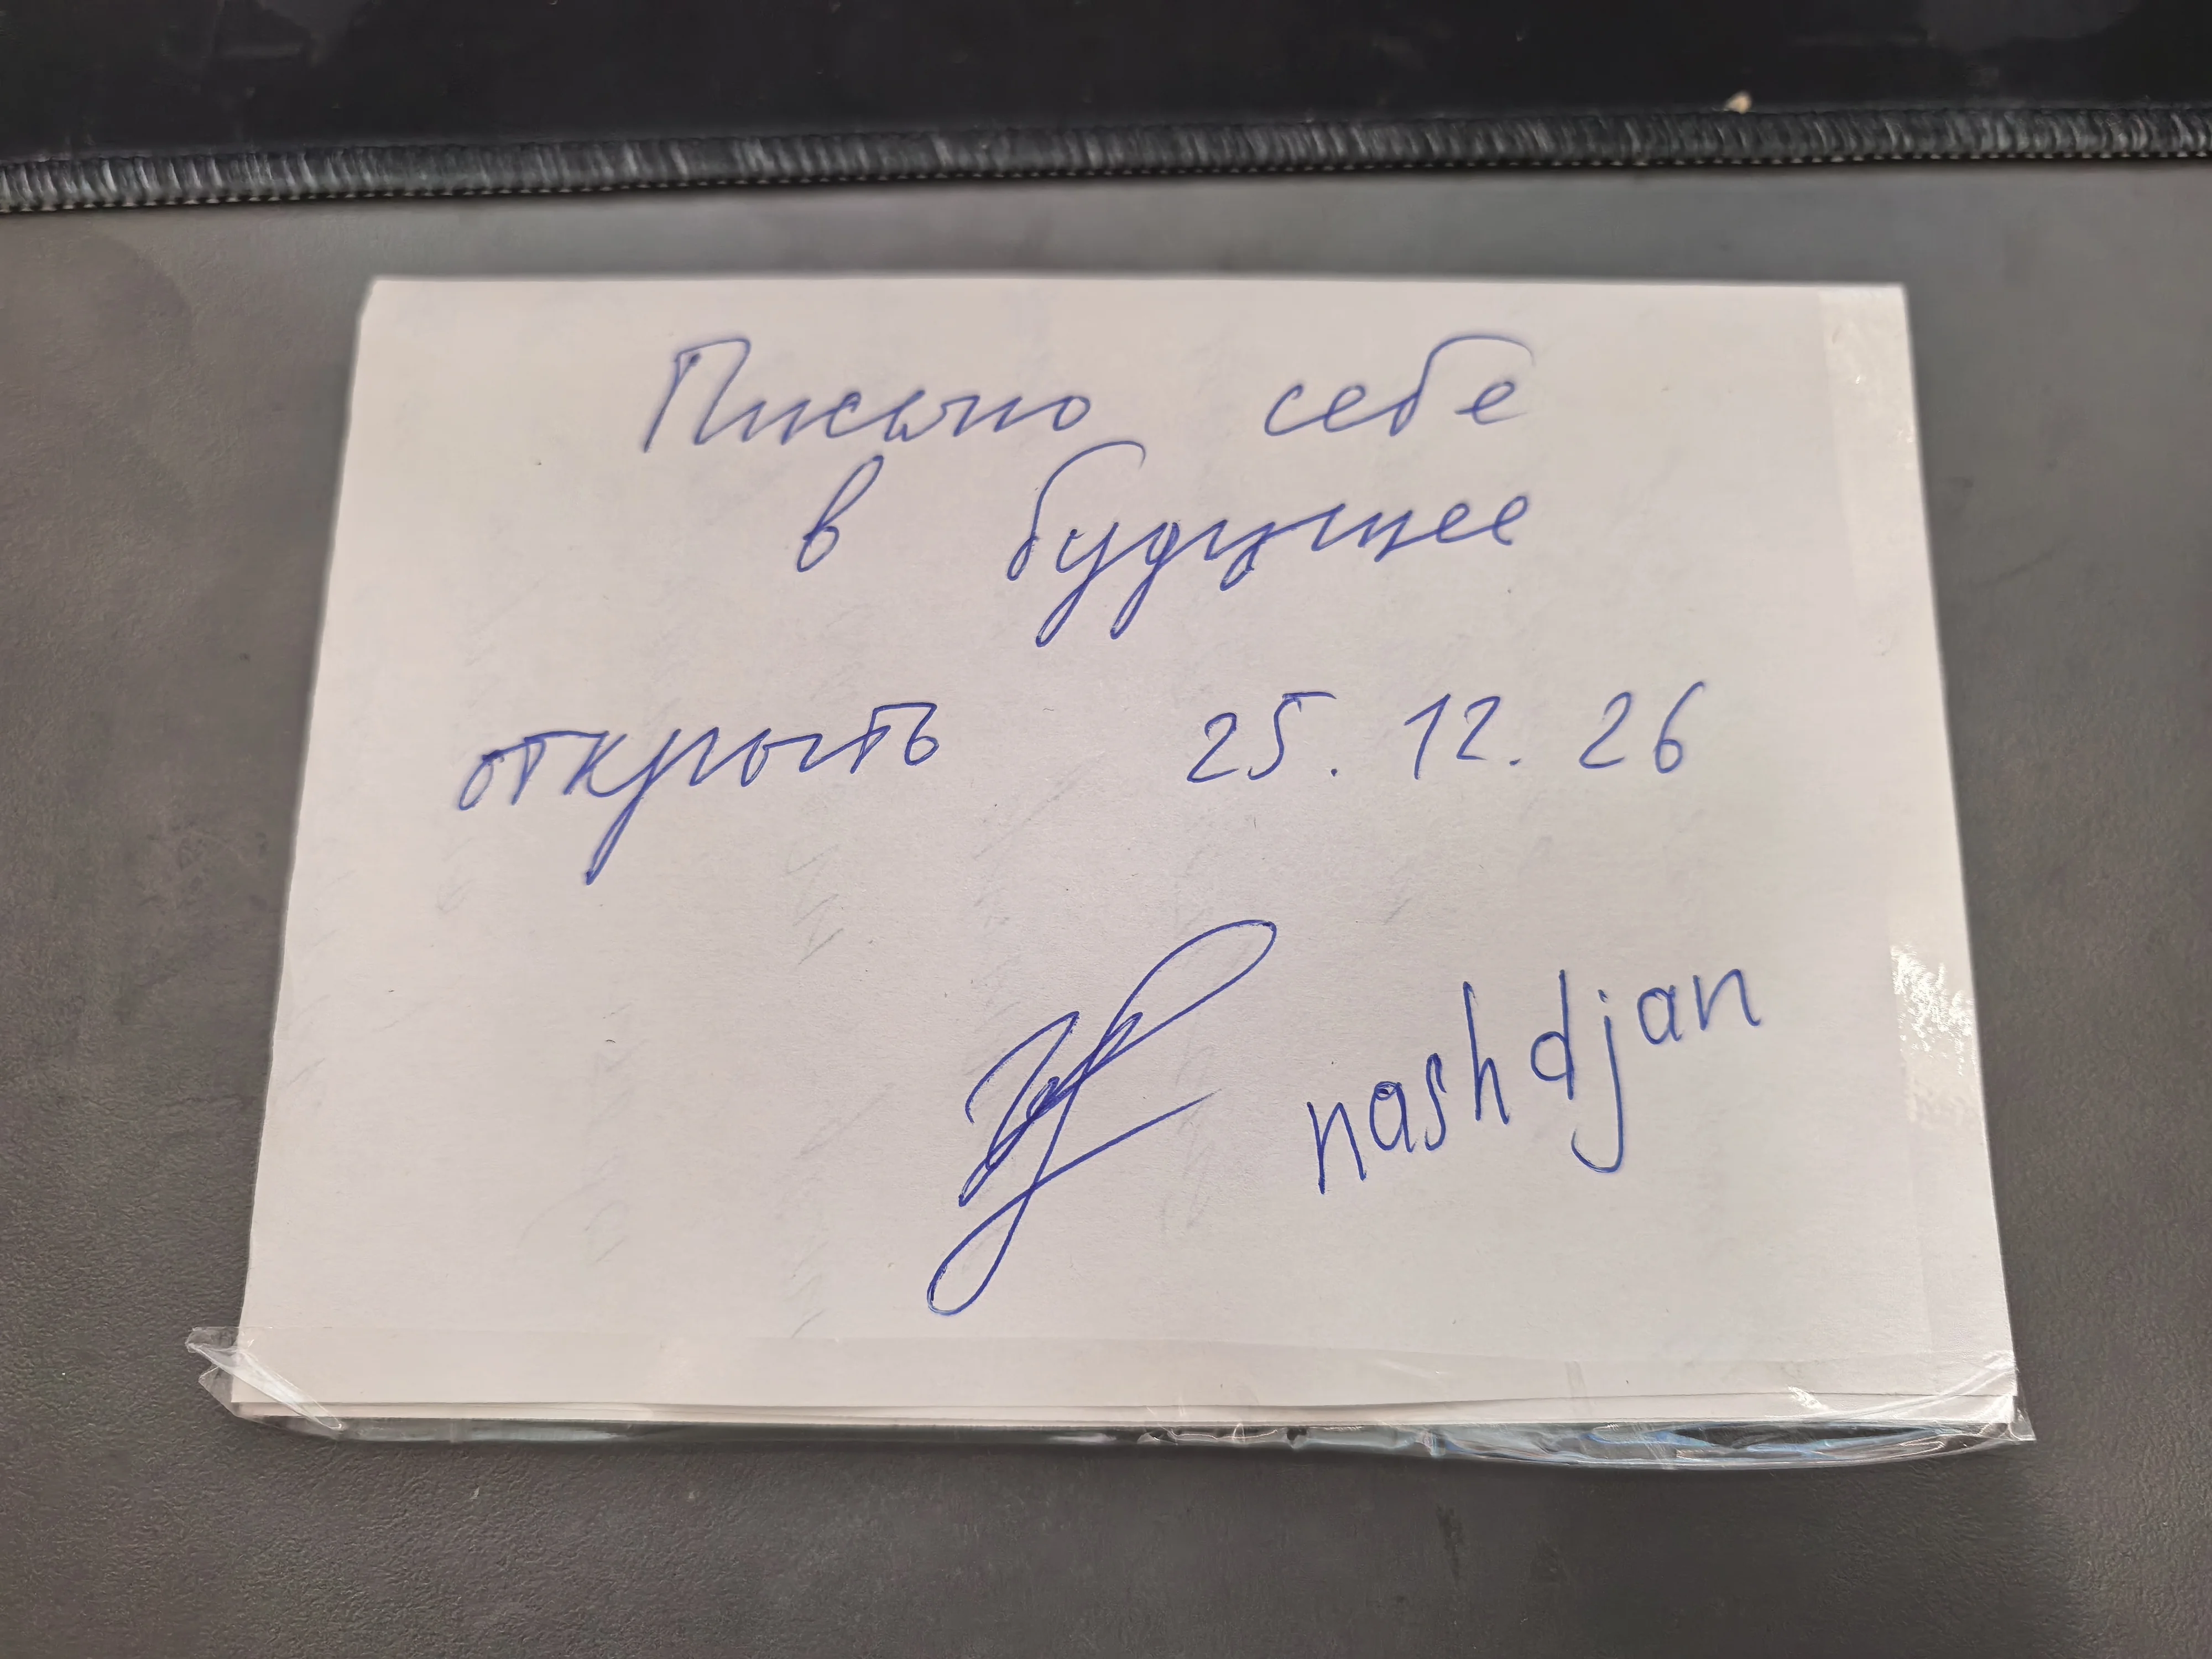 Письмо себе
в будущее
открыть 25.12.26
nashdjan